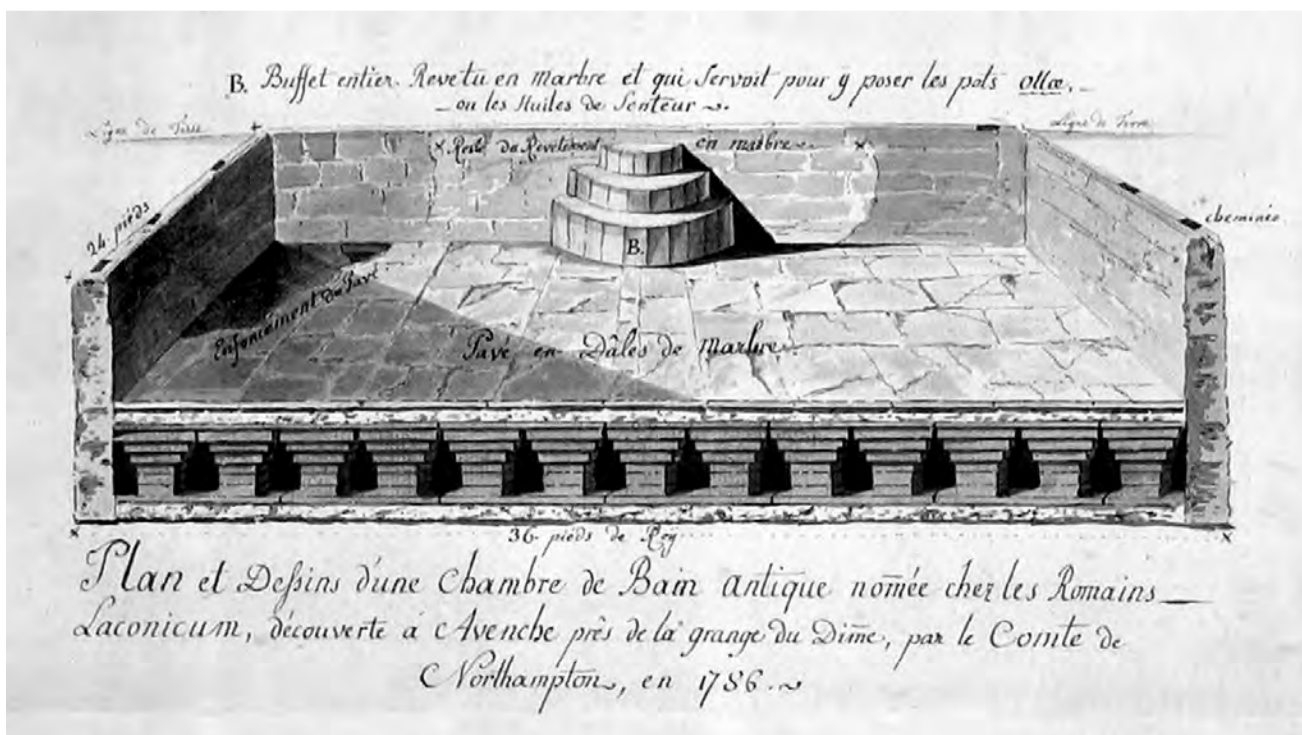 B. Buffet entier. Revetu en marbre et qui Servoit pour y poser les pots ollæ,
ou les Huiles de Senteur
Ligne de Terre
Ligne de Terre
Reste du Revêtement en marbre
24. pieds
cheminée
B.
Enfoncement du Pavé
Pavé en Dâles de marbre.
36. pieds de Roÿ
Plan et Deßins d'une Chambre de Bain antique nom̄ée chez les Romains
Laconicum, découverte á Avenche près de la grange du Dim̄e, par le Comte de
Northampton, en 1786.